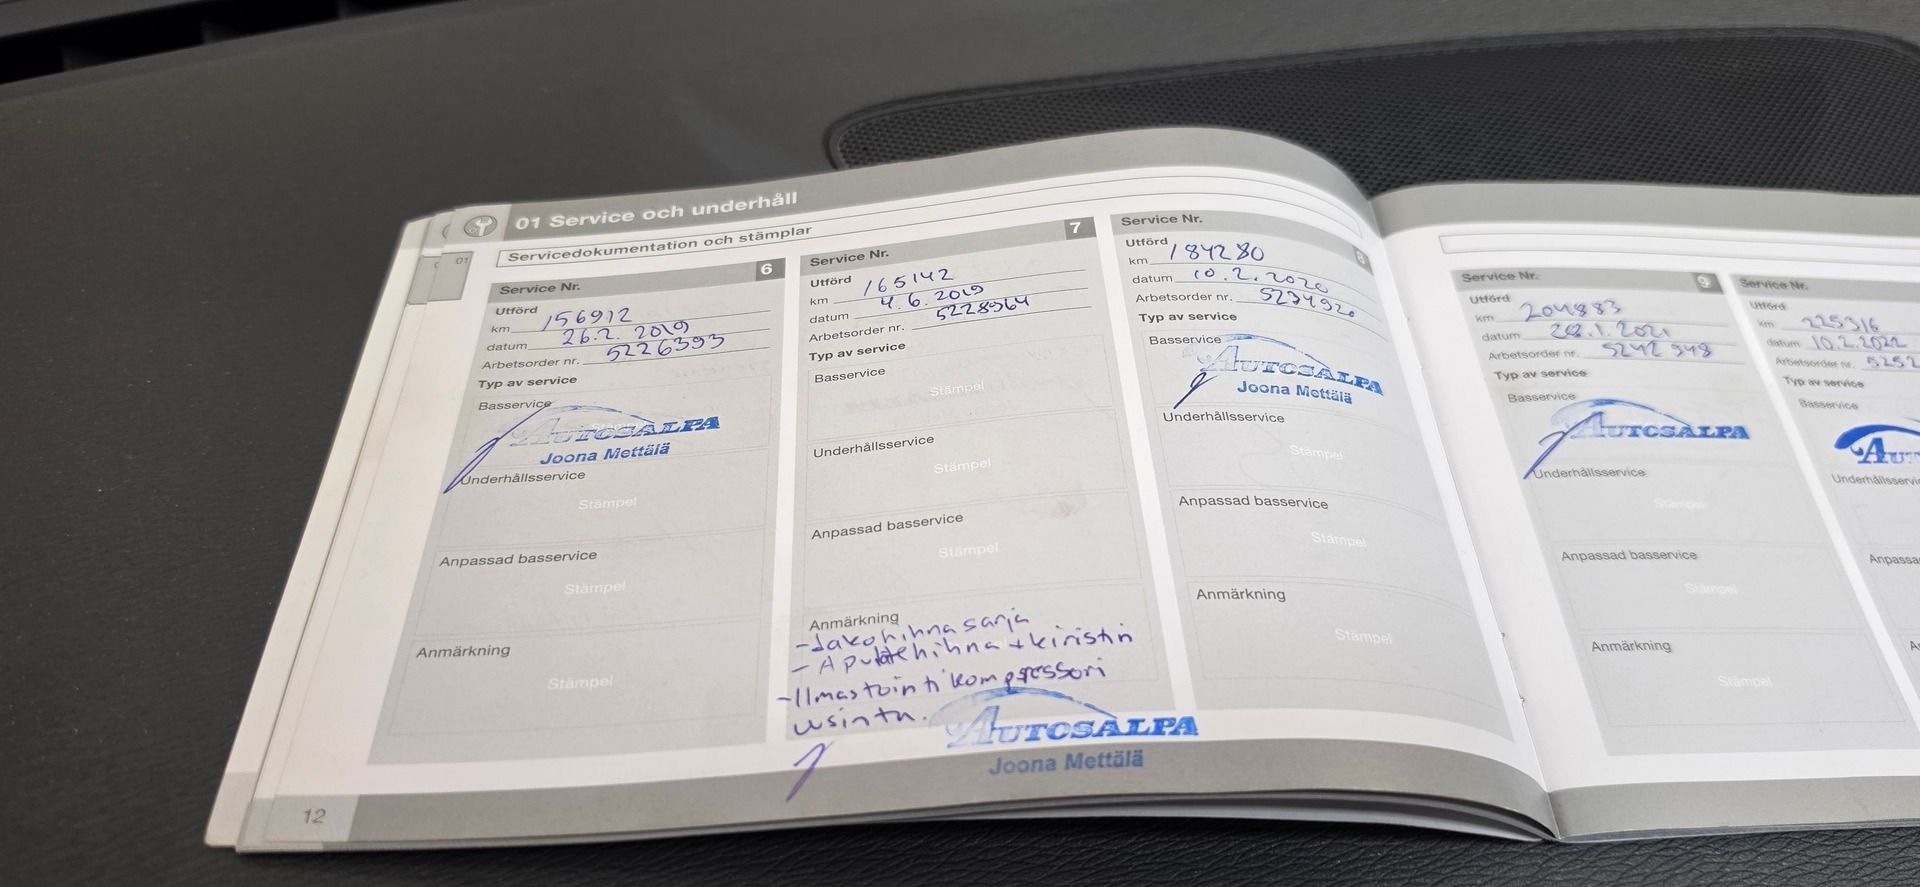 01 Service och underhåll
Servicedokumentation och stämplar
01
Service Nr. 6
Utförd
km 156912
datum 26.2. 2019
Arbetsorder nr. 5226393
Typ av service
Basservice
AUTOSALPA
Joona Mettälä
Underhållsservice
Stämpel
Anpassad basservice
Stämpel
Anmärkning
Stämpel
12
Service Nr. 7
Utförd
km 165142
datum 4.6.2019
Arbetsorder nr. 5228964
Typ av service
Basservice
Stämpel
Underhållsservice
Stämpel
Anpassad basservice
Stämpel
Anmärkning
- Jakohihnasarja
- Apulaitehihna + kiristin
- Ilmastointikompressori
uusinta.
AUTOSALPA
Joona Mettälä
Service Nr. 8
Utförd
km 184280
datum 10.2.2020
Arbetsorder nr. 5234920
Typ av service
Basservice
AUTOSALPA
Joona Mettälä
Underhållsservice
Stämpel
Anpassad basservice
Stämpel
Anmärkning
Stämpel
Service Nr. 9
Utförd
km 204883
datum 28.1.2021
Arbetsorder nr. 5242948
Typ av service
Basservice
AUTOSALPA
Underhållsservice
Stämpel
Anpassad basservice
Stämpel
Anmärkning
Stämpel
Service Nr.
Utförd
km 225316
datum 10.2.2022
Arbetsorder nr. 5252
Typ av service
Basservice
AUT
Underhållsservic
Anpassa
A